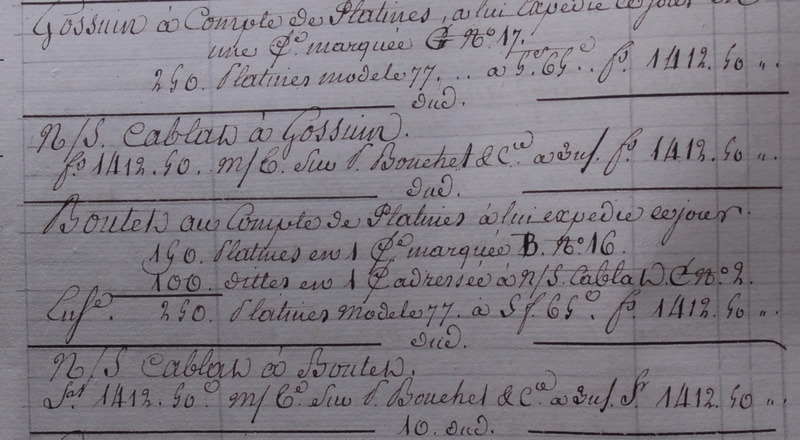 Gossuin à Compte de Platines, à lui Expedié ce jour en
une Cse. marquée G No. 17.
250. Platines modele 77. .. a 5f. 65c. .. fs. 1412. 50 "
dud.
N/S. Cablat à Gossuin.
fs. 1412. 50. m/C. sur P. Bouchet & Cie. a 3us/. fs. 1412. 50 "
dud.
Boutet au Compte de Platines à lui expedié ce jour.
150. Platines en 1 Cse. marquée B. No. 16.
100. dittes en 1 Cse adressée à N/S. Cablat No. 2.
Ense. 250. Platines modele 77. à 5f. 65c. fs. 1412. 50 "
dud.
N/S Cablat à Boutet.
1412. 50c. m/Ct. sur P. Bouchet & Cie. a 3us/. 1412. 50 "
10. dud.